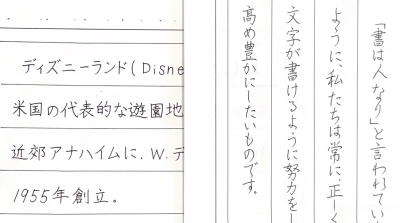 ディズニーランド(Disne
米国の代表的な遊園地
近郊アナハイムに、W.デ
1955年創立。
「書は人なり」と言われてい
ように、私たちは常に、正しく
文字が書けるように努力を
高め豊かにしたいものです。